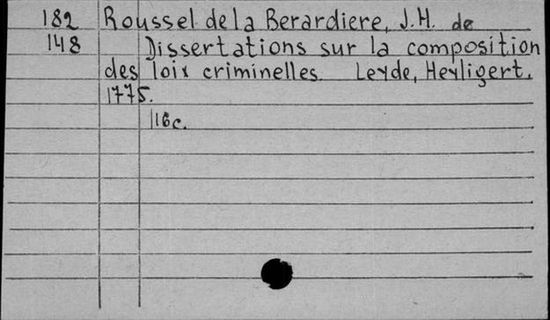 182 Roussel de la Berardiere, J.H. de
148 Dissertations sur la composition
des loix criminelles. Leyde, Heyligert.
1775.
116c.